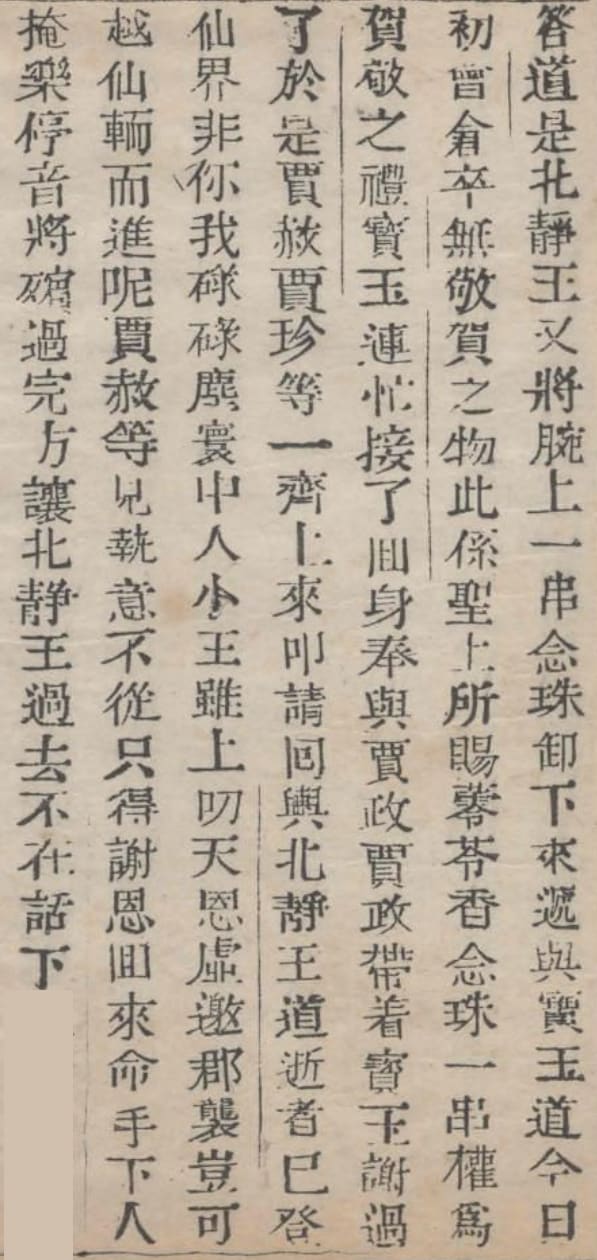 答道是北靜王又將腕上一串念珠卸下來遞與寶玉道今日
初會倉卒無敬賀之物此係聖上所賜蕶苓香念珠一串權爲
賀敬之禮寶玉連忙接了回身奉與賈政賈政帶着寶玉謝過
了於是賈赦賈珍等一齊上來叩請回輿北靜王道逝者已登
仙界非你我碌碌塵寰中人小王雖上叨天恩虛邀郡襲豈可
越仙輀而進呢賈赦等見執意不從只得謝恩回來命手下人
掩樂停音將殯過完方讓北靜王過去不在話下